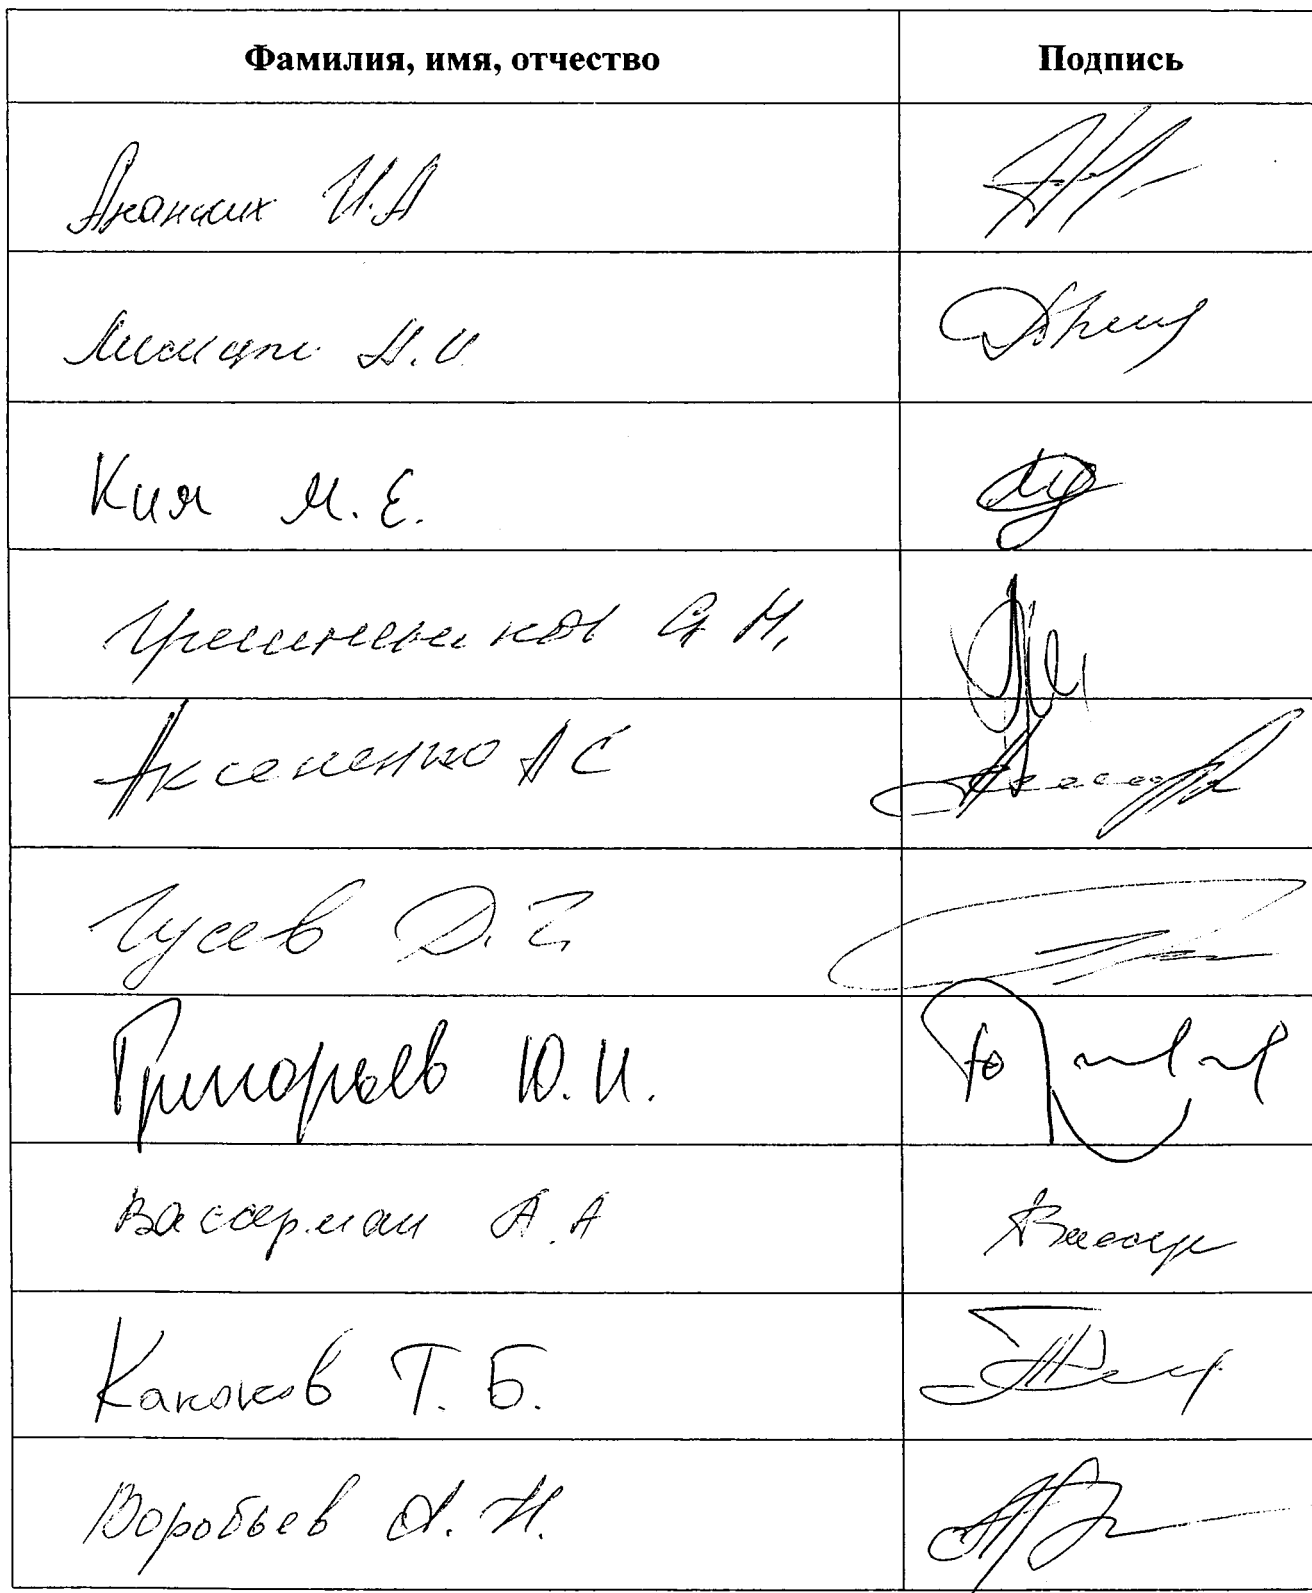 Фамилия, имя, отчество Подпись
Ананских И.А
Н.И.
Кия М.Е.
С Н.
Аксененко А С
Гусев Д.Г.
Григорьев Ю.И.
Вассерман А.А
Каноков Т.Б.
Воробьев А.Н.